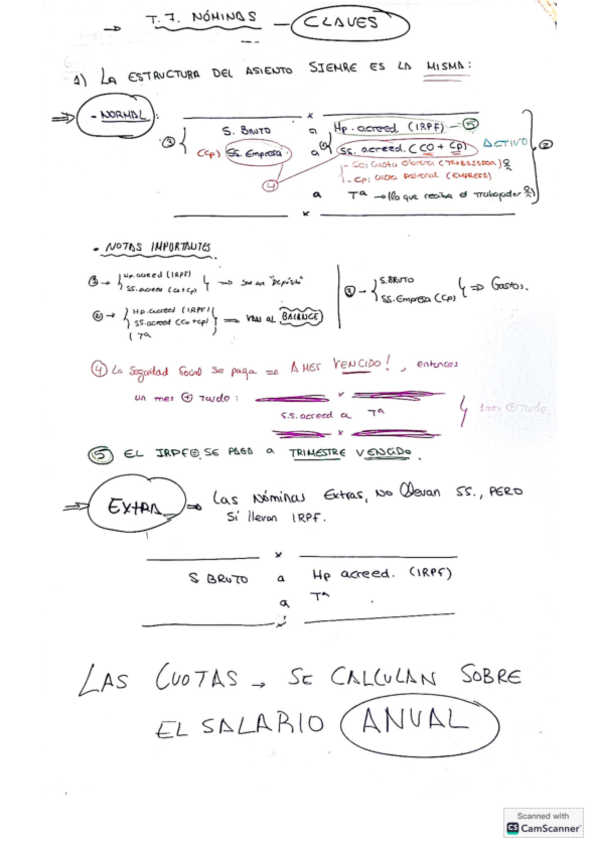 → T. 7. NÓMINAS — CLAVES
1) LA ESTRUCTURA DEL ASIENTO SIEMRE ES LA MISMA:
⇒ - NORMAL:
x
③ S. BRUTO a Hp. acreed (IRPF) - ⑤
(Cp) SS. Empresa a SS. acreed. (CO + CP) ACTIVO ②
- CO: cuota obrera (TRABAJADOR)
- Cp: cuota patronal (EMPRESA)
④
a Tª → (lo que recibe el trabajador)
x
• NOTAS IMPORTANTES
Hp. acreed (IRPF)
SS. acreed (CO+CP) → "Depósito"
② → HP. acreed (IRPF)
SS. acreed (CO+CP) ⇒ VAN AL BALANCE
Tª
③ → S. BRUTO
SS. Empresa (Cp) ⇒ Gastos.
④ La Seguridad Social se paga ⇒ A MES VENCIDO!, entonces
un mes ⊕ tarde:
x
S.S. acreed a Tª
1 mes ⊕ tarde.
x
⑤ EL IRPF SE PAGA A TRIMESTRE VENCIDO.
⇒ EXTRA ⇒ Las Nóminas Extras, NO llevan SS., PERO
SÍ llevan IRPF.
x
S BRUTO a Hp acreed. (IRPF)
a Tª
x
LAS CUOTAS → SE CALCULAN SOBRE
EL SALARIO ANUAL
Scanned with
CS CamScanner